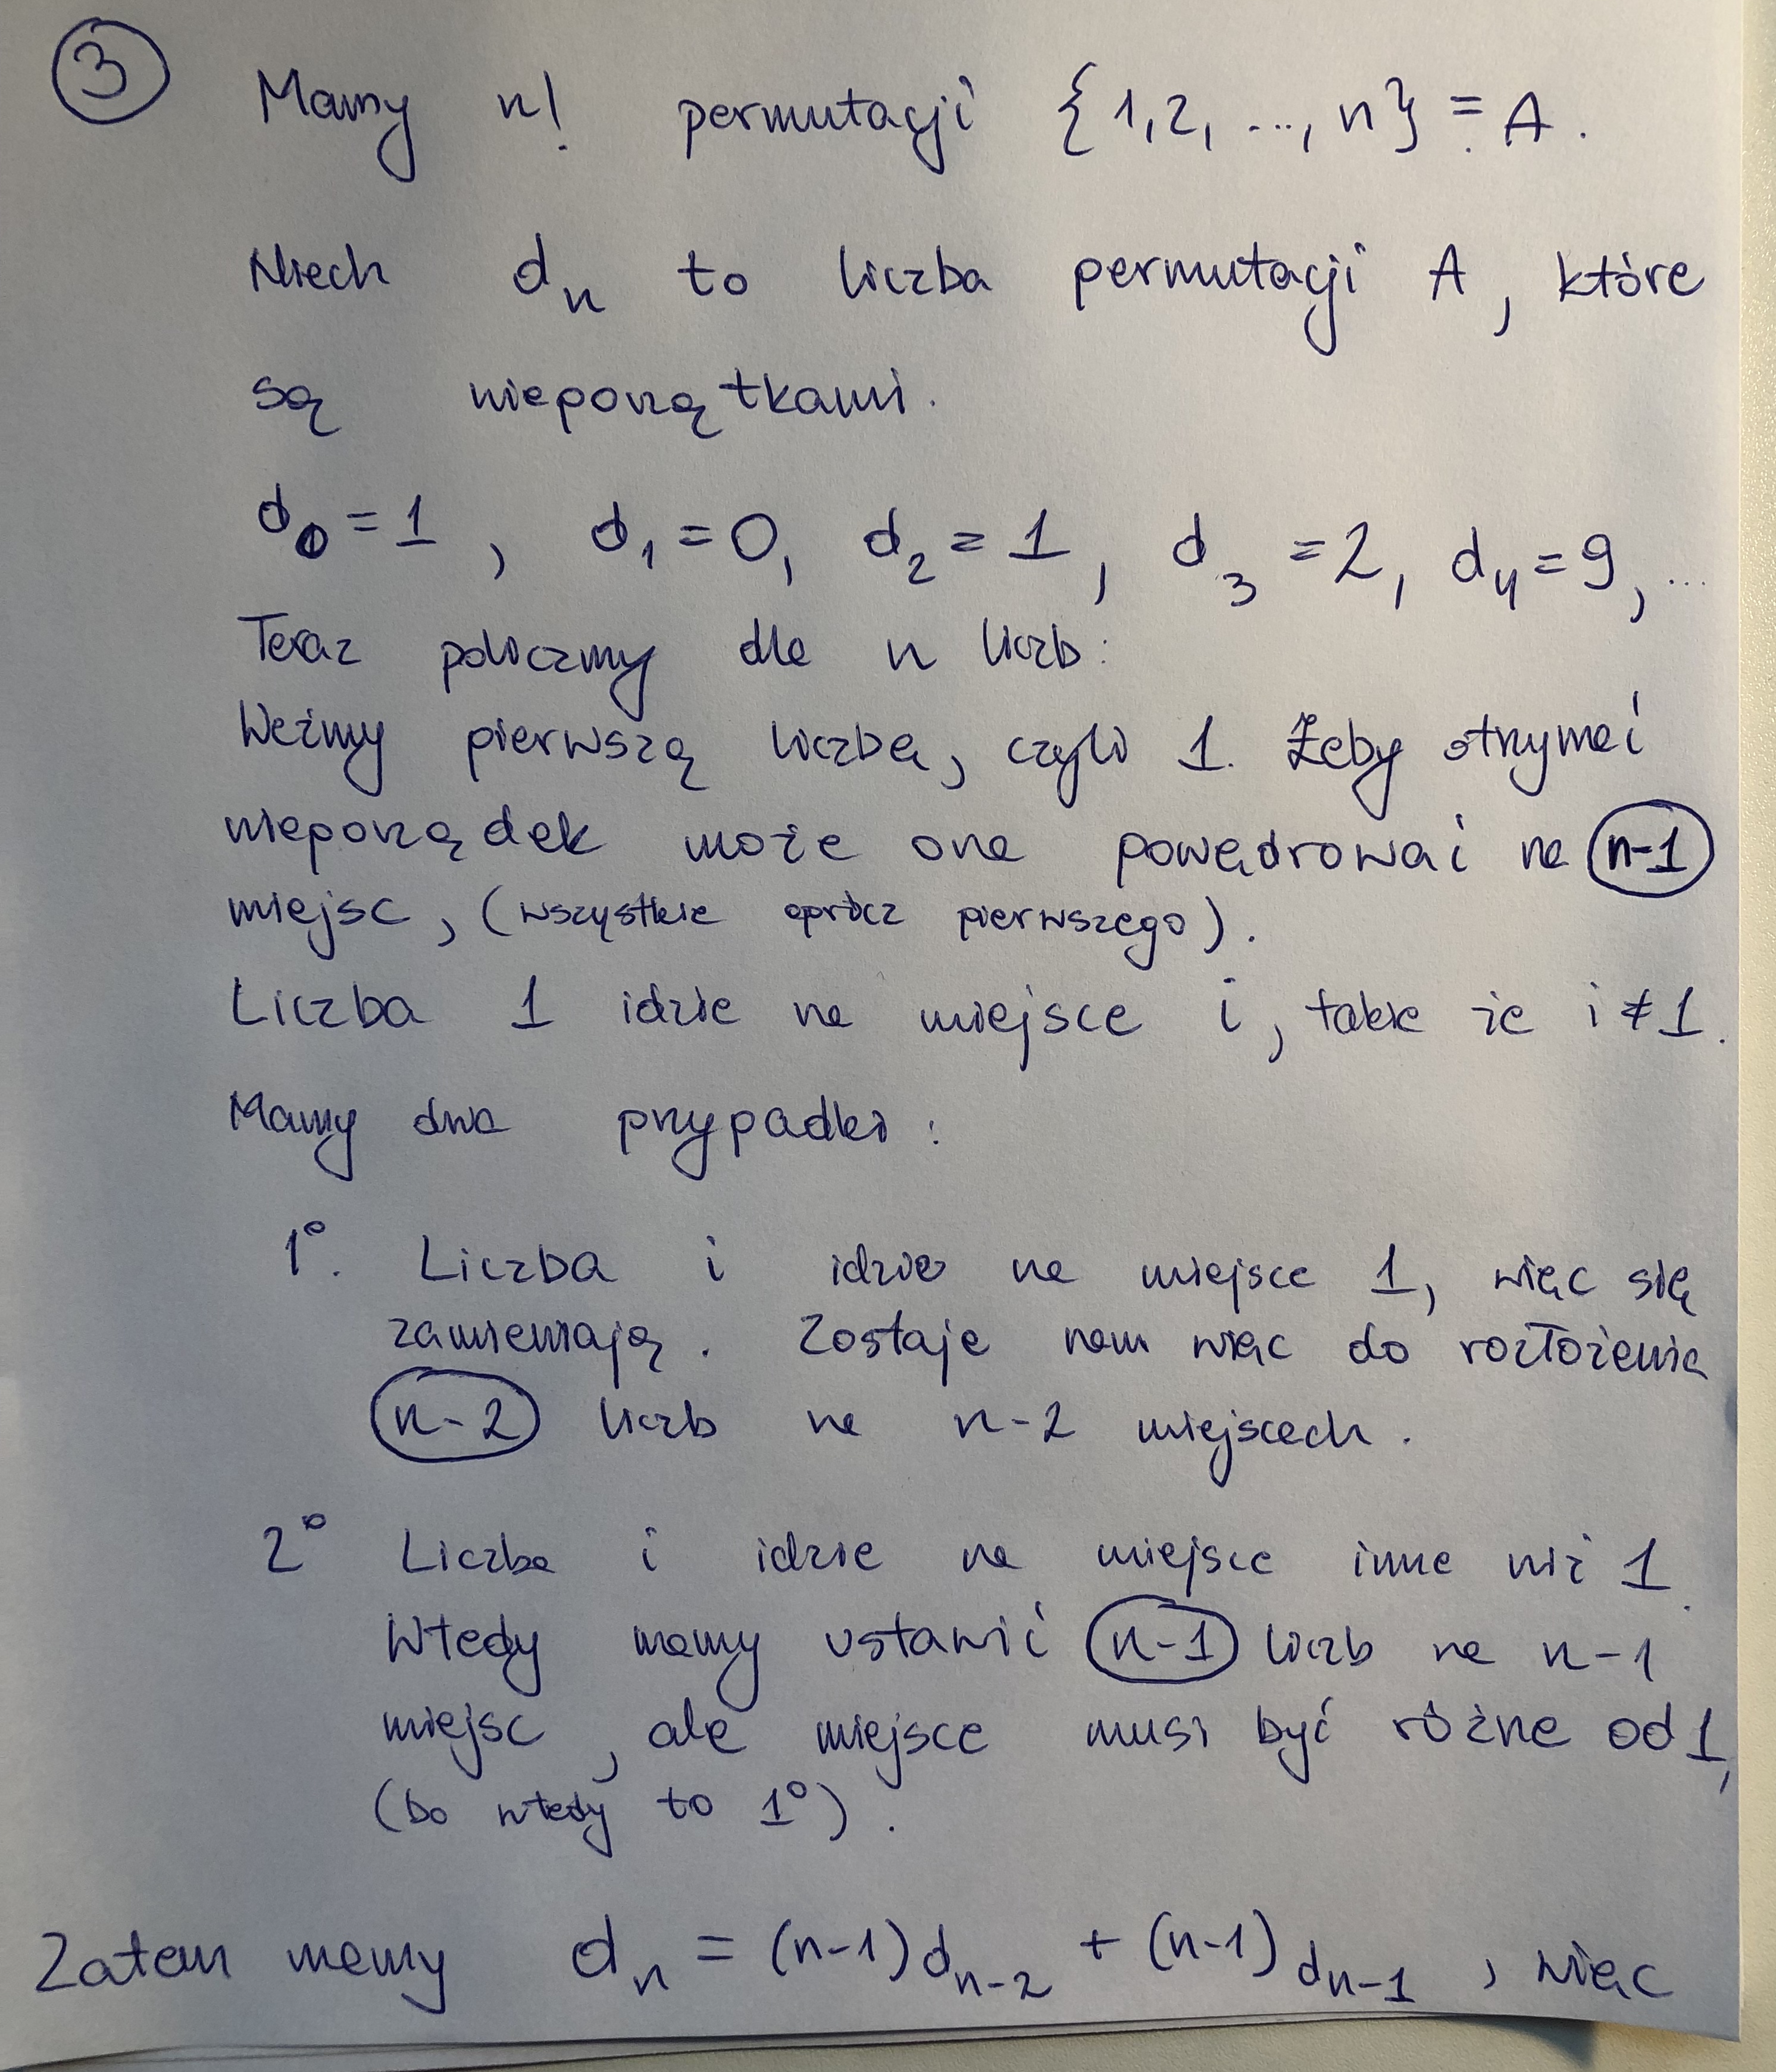 3 Mamy n! permutacji {1,2, ..., n} = A.
Niech dₙ to liczba permutacji A, które
są nieporządkami.
d₀ = 1, d₁ = 0, d₂ = 1, d₃ = 2, d₄ = 9, ...
Teraz policzmy dla n liczb:
Weźmy pierwszą liczbę, czyli 1. Żeby otrzymać
nieporządek może ona powędrować na n-1
miejsc, (wszystkie oprócz pierwszego).
Liczba 1 idzie na miejsce i, takie że i ≠ 1.
Mamy dwa przypadki:
1°. Liczba i idzie na miejsce 1, więc się
zamieniają. Zostaje nam więc do rozłożenia
n-2 liczb na n-2 miejscach.
2° Liczba i idzie na miejsce inne niż 1.
Wtedy mamy ustawić n-1 liczb na n-1
miejsc, ale miejsce musi być różne od 1,
(bo wtedy to 1°).
Zatem mamy dₙ = (n-1)dₙ₋₂ + (n-1)dₙ₋₁, więc